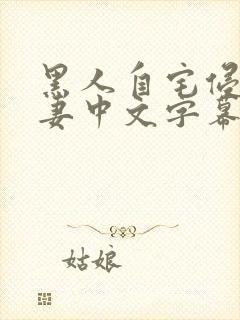 黑人自宅侵
妻中文字幕
姑娘